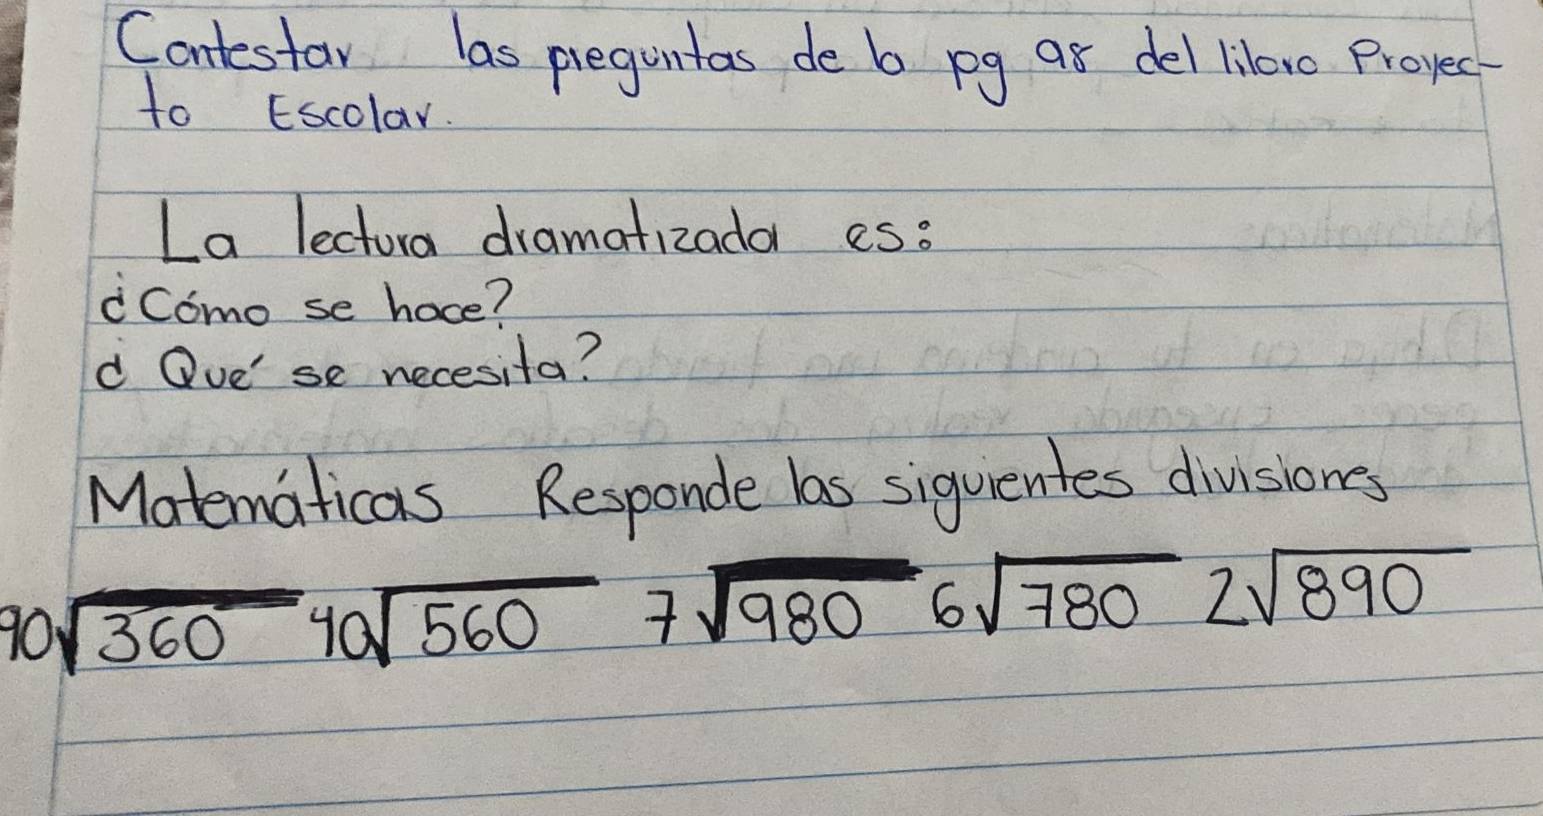 Contestar las preguntas de la pg 98 del libro Proyec-
to Escolar.
La lectura dramatizada es:
¿Cómo se hace?
¿Qué se necesita?
Matemáticas Responde las siguientes divisiones
90√360 40√560 7√980 6√780 2√890